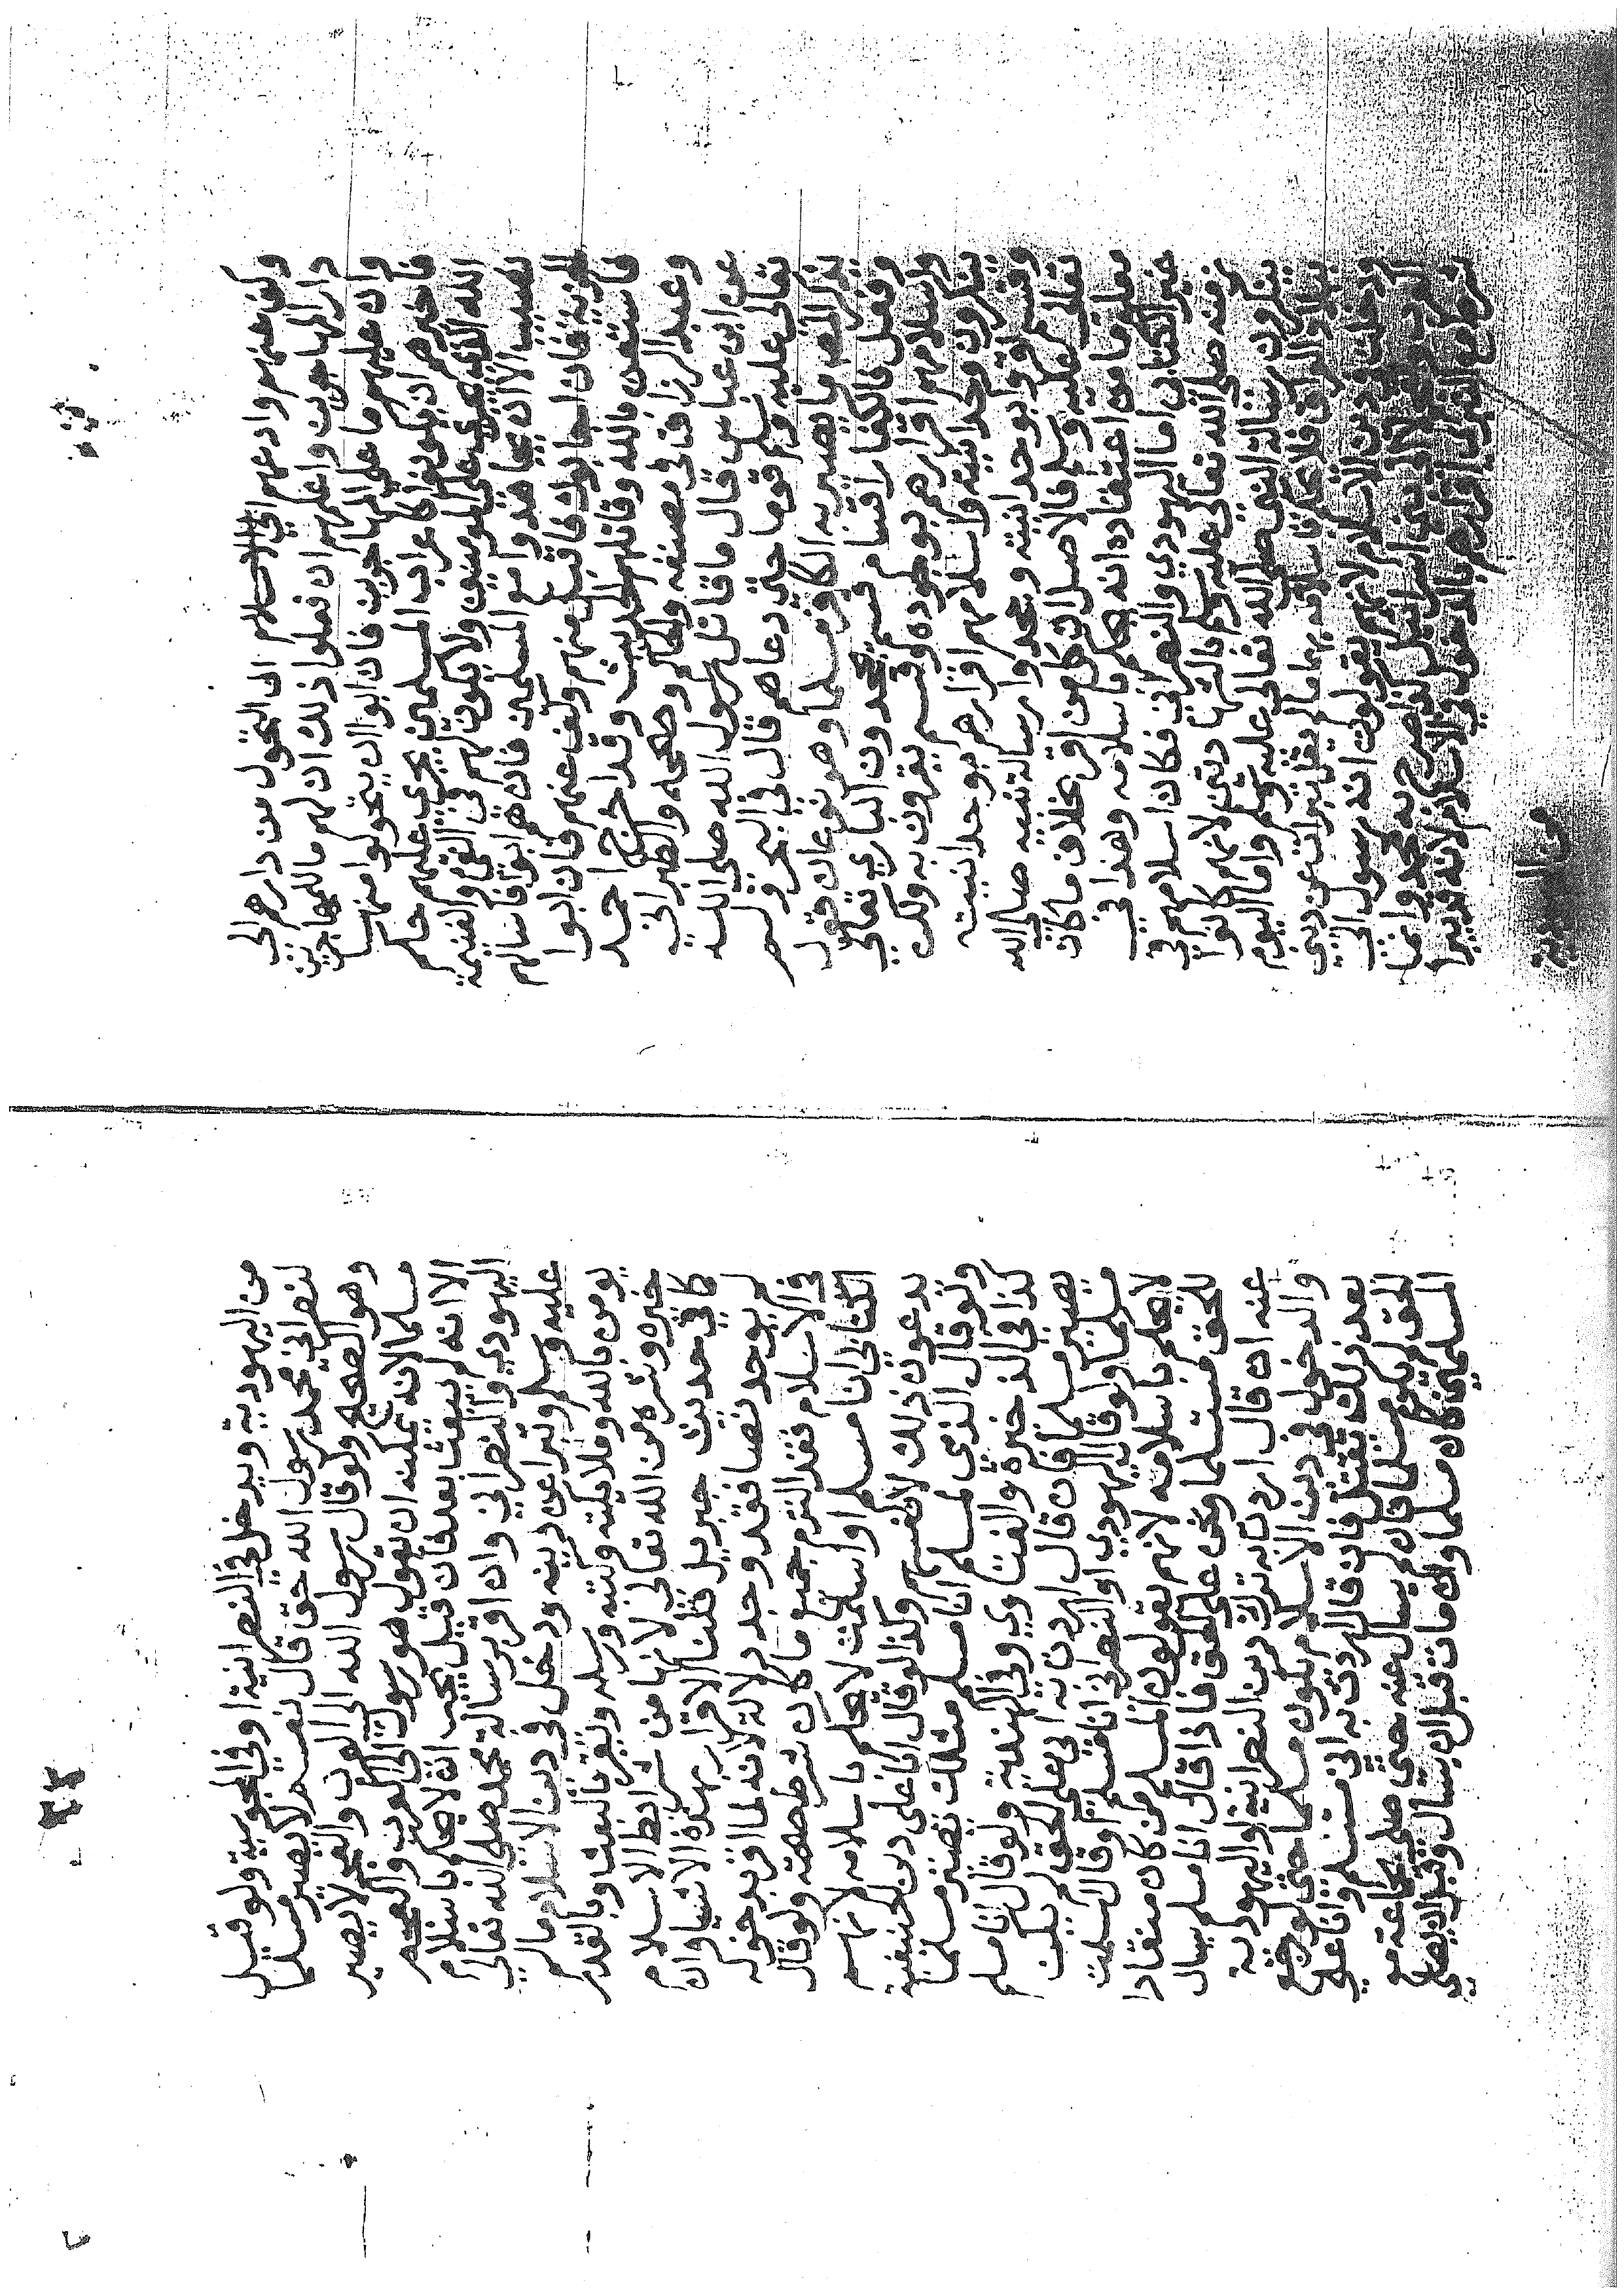 وكف عنهم وادعهم الى الاسلام الى التحول من دارهم الى
دار المهاجرين واعلمهم ان فعلوا ذلك ان لهم ما للمهاجرين
وان عليهم ما على المهاجرين فان ابوا ان يتحولوا منها
فاخبرهم ان يكونوا كاعراب المسلمين يجري عليهم حكم
الله الذي يجري على المومنين ولا يكون لهم في الفئ والغنيمة
نصيب الا ان يجاهدوا مع المسلمين فان هم ابوا فاسالهم
الجزية فان اجابوك فاقبل منهم وكف عنهم فان ابوا
فاستعن بالله وقاتلهم الحديث وقد اخرج احمد
وعبد الرزاق في مصنفه والحاكم وصححه والطبراني
عن ابن عباس قال ما قاتل رسول الله صلى الله
تعالى عليه وسلم قوما حتى دعاهم قال في البحر ولم
يذكر المص ما يصير به الكافر مسلما وهو نوعان قول
وفعل فالكفار اقسام قسم يجحدون الباري تعالى
واسلامهم اقرارهم بوجوده وقسم يقرون به ولكن
ينكرون وحدانيته واسلامهم اقرارهم بوحدانيته
وقسم اقروا بوحدانيته وجحدوا رسالة نبيه صلى الله
تعالى عليه وسلم فالاصل ان كل من اقر بخلاف ما كان
معلوما من اعتقاده انه يحكم باسلامه وهذا في
غير الكتابي اما اليهودي والنصراني فكان اسلامهم في
زمنه صلى الله تعالى عليه وسلم بالشهادتين لانهم كانوا
ينكرون رسالة النبي صلى الله تعالى عليه وسلم واما اليوم
ببلاد العراق فلا يحكم باسلامه بهما ما لم يقل تبرات عن ديني
ودخلت في دين الاسلام لانهم يقولون انه رسول الى
العرب والعجم لا الى بني اسرائيل
بالدخول في الاسلام لانه قد تبرا
من اليهودية
من اليهودية ويدخل في النصرانية او في المجوسية ولو قيل
لنصراني محمد رسول الله حق قال نعم لا يصير مسلما
وهو الصحيح ولو قال رسول الله الى العرب والعجم لا يصير
مسلما لانه يمكنه ان يقول هو رسول الى العرب والعجم
الا انه لم يبعث بعد فان قيل يجب ان لا يحكم باسلام
اليهودي والنصراني وان اقر برسالة محمد صلى الله تعالى
عليه وسلم وتبرا عن دينه ودخل في دين الاسلام ما لم
يومن بالله وملايكته وكتبه ورسله ويقر بالبعث وبالقدر
خيره وشره من الله تعالى لانها من شرائط الاسلام
كما في حديث جبريل قلنا الاقرار بهذه الاشياء وان
لم يوجد نصا فقد وجد دلالة لانه لما اقر بدخوله
في الاسلام فقد التزم جميع ما كان شرط صحته ولو قال
الكتابي انا مسلم او اسلمت لا يحكم باسلامه لانهم
يدعون ذلك لانفسهم وكذا لو قال انا على دين الحنيفية
ولو قال الذمي لمسلم انا مسلم مثلك يصير مسلما
كذا في الذخيرة والفتاوي وفي الهندية ولو قال انا مسلم
يصير مسلما فان قال اردت به اني على الحق لم يكن
مسلما ولو قال اليهودي او النصراني انا مسلم او قال اسلمت
لا يحكم باسلامه لانهم يقولون المسلم من كان منقادا
للحق مستسلما ونحن على الحق فاذا قال انا مسلم يسال
عنه ان قال اردت به ترك دين النصرانية او اليهودية
والدخول في دين الاسلام يكون مسلما حتى لو رجع
بعد ذلك يقتل فان قال اردت به اني مستسلم وانا على
الحق لم يكن مسلما فان لم يسال عنه حتى صلى بجماعة مع
المسلمين كان مسلما وان مات قبل ان يسال وقبل ان يصلي